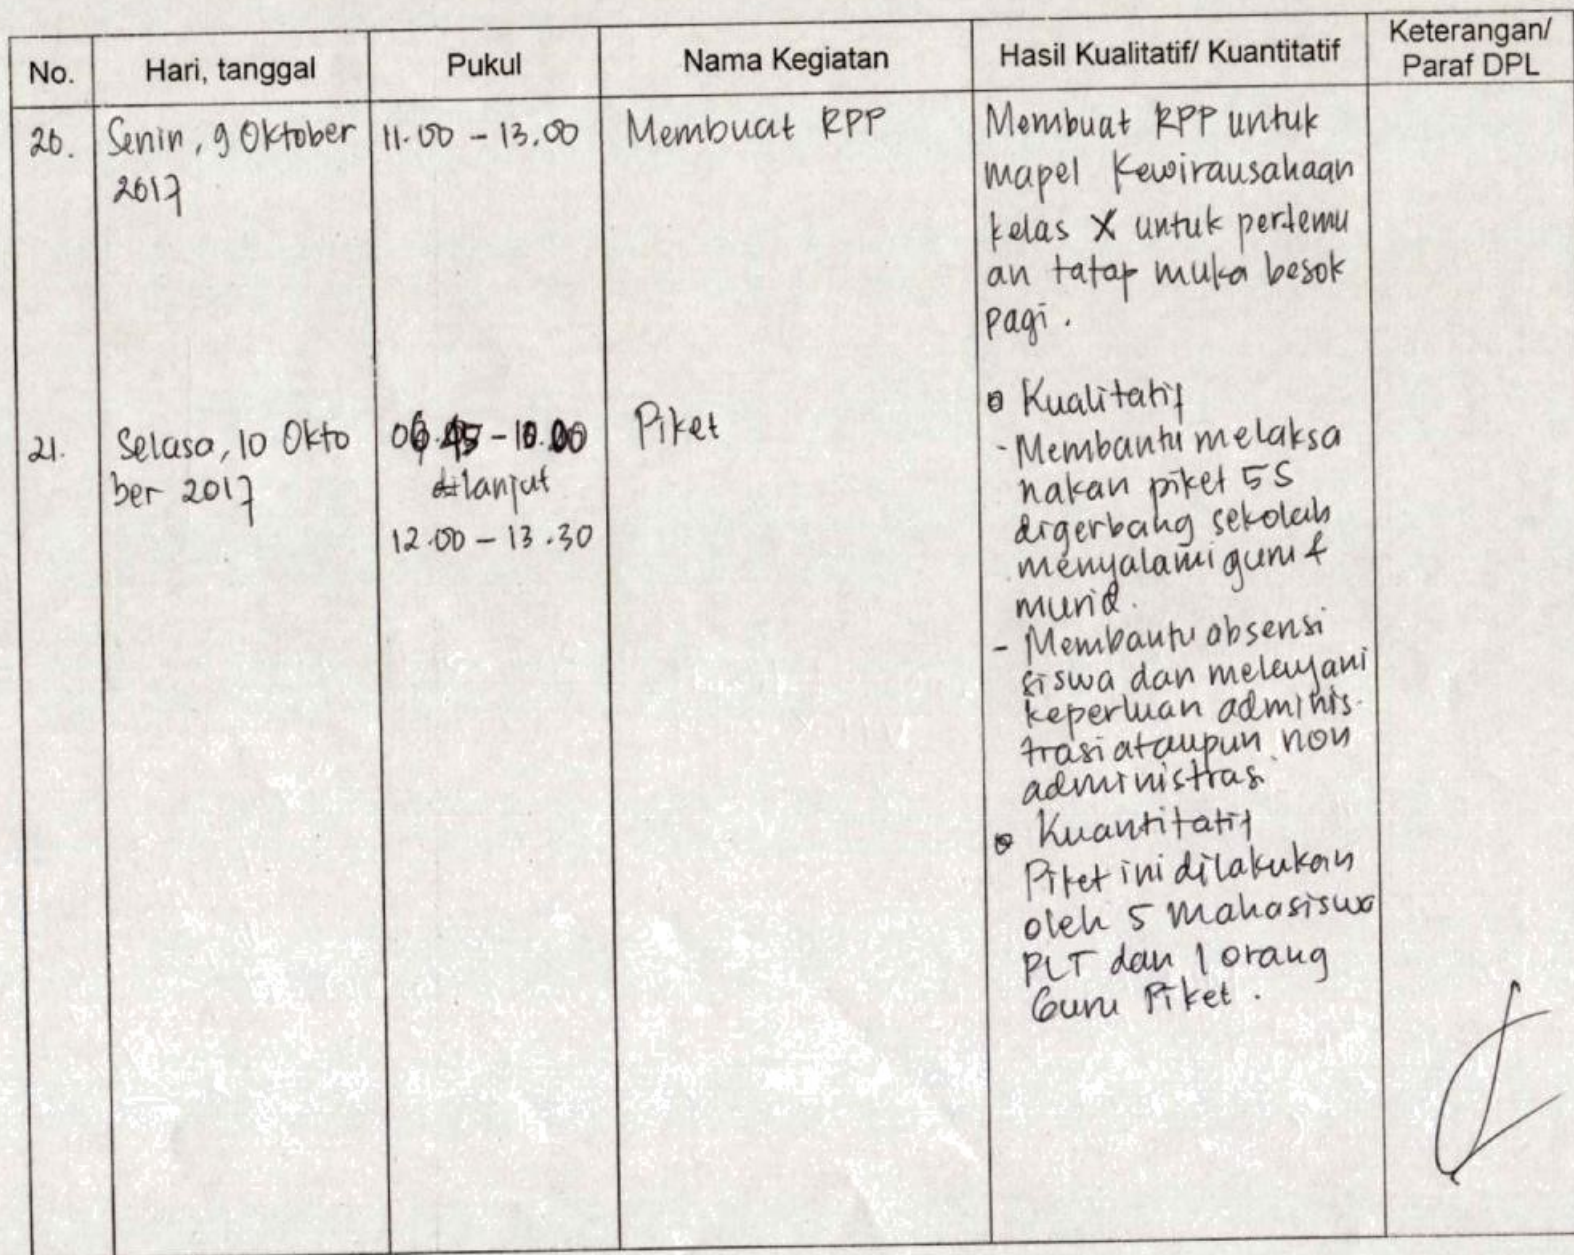 No.
Hari, tanggal
Pukul
Nama Kegiatan
Hasil Kualitatif/ Kuantitatif
Keterangan/
Paraf DPL
20.
Senin, 9 Oktober
2017
11.00 - 13.00
Membuat RPP
Membuat RPP untuk
mapel Kewirausahaan
kelas X untuk pertemu
an tatap muka besok
pagi.
21.
Selasa, 10 Okto
ber 2017
dilanjut
12.00 - 13.30
Piket
Kualitatif
- Membantu melaksa
nakan piket 5S
digerbang sekolah
menyalami guru &
murid.
- Membantu absensi
siswa dan melayani
keperluan adminis-
trasi ataupun non
administrasi
Kuantitatif
Piket ini dilakukan
oleh 5 Mahasiswa
PLT dan 1 orang
Guru Piket.